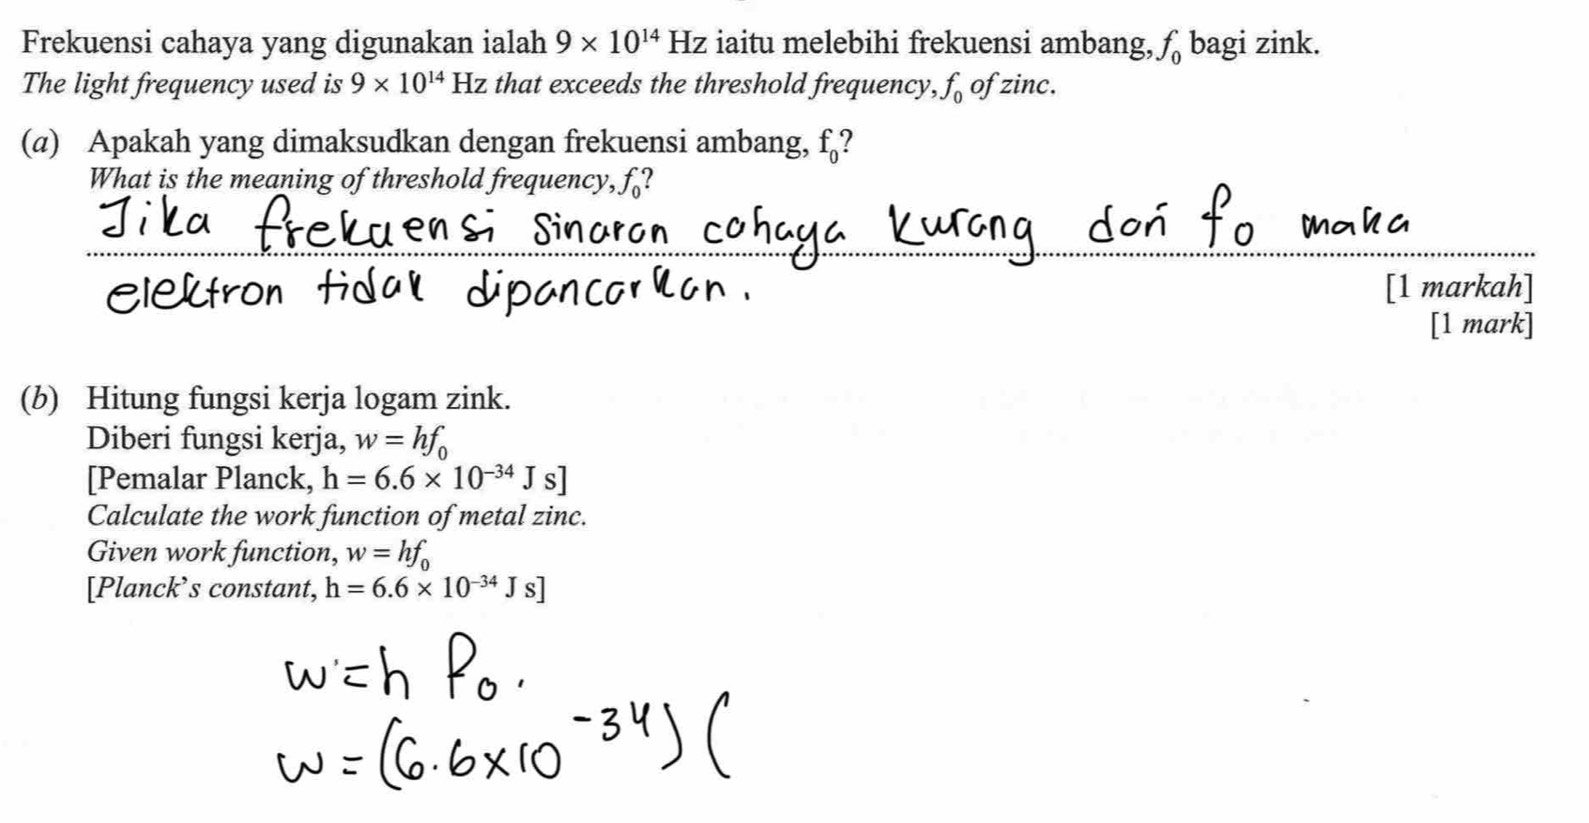 Frekuensi cahaya yang digunakan ialah 9 × 10¹⁴ Hz iaitu melebihi frekuensi ambang, f₀ bagi zink.
The light frequency used is 9 × 10¹⁴ Hz that exceeds the threshold frequency, f₀ of zinc.
(a) Apakah yang dimaksudkan dengan frekuensi ambang, f₀?
What is the meaning of threshold frequency, f₀?
Jika frekuensi sinaran cahaya kurang dari f₀ maka
elektron tidak dipancarkan.
[1 markah]
[1 mark]
(b) Hitung fungsi kerja logam zink.
Diberi fungsi kerja, w = hf₀
[Pemalar Planck, h = 6.6 × 10⁻³⁴ J s]
Calculate the work function of metal zinc.
Given work function, w = hf₀
[Planck's constant, h = 6.6 × 10⁻³⁴ J s]
w = h f₀.
w = (6.6×10⁻³⁴) (